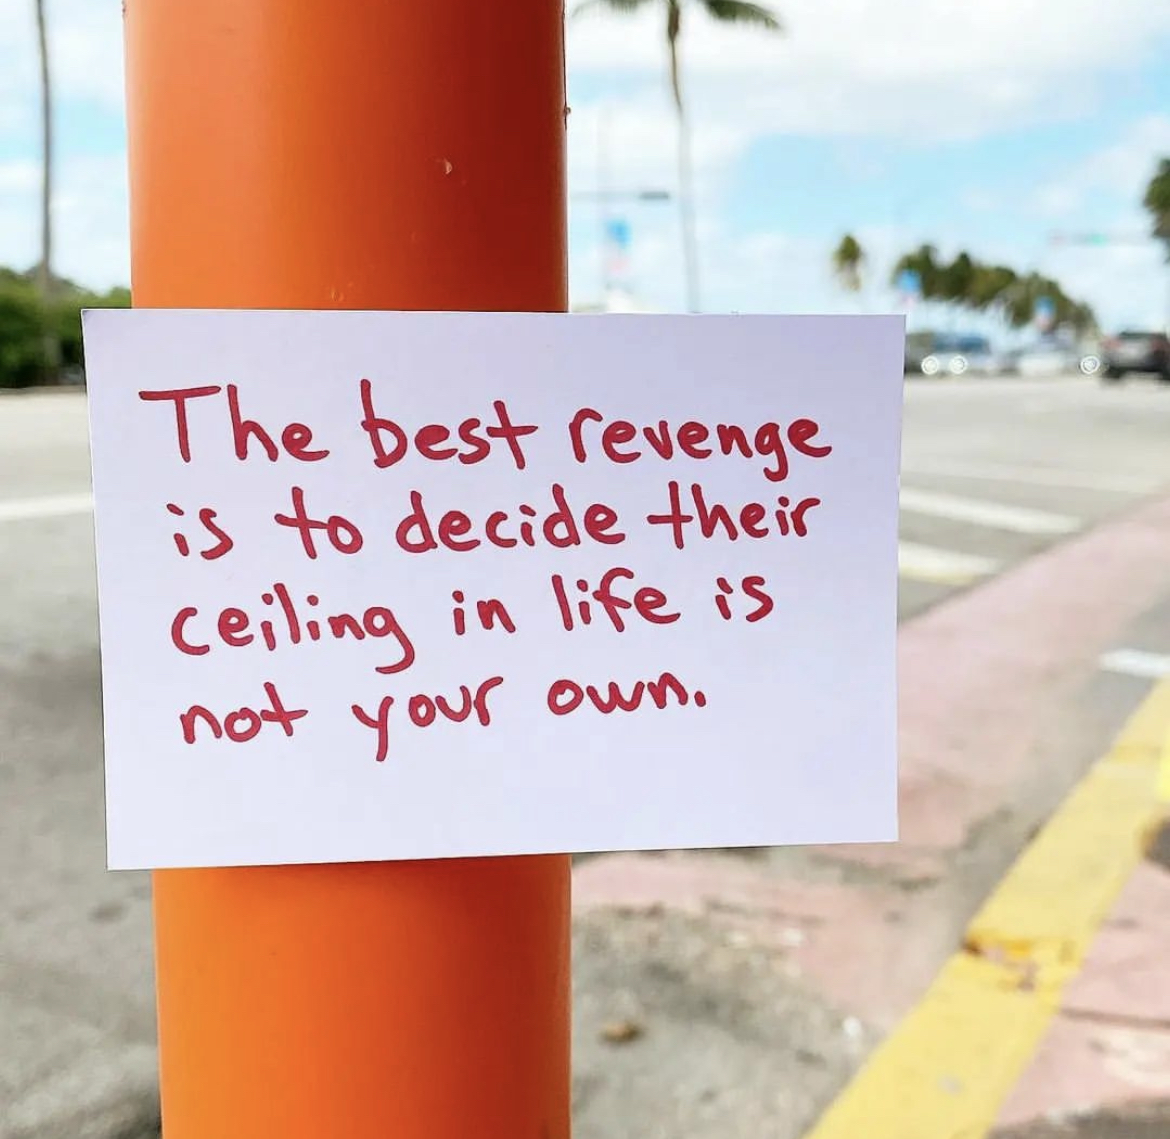 The best revenge
is to decide their
ceiling in life is
not your own.